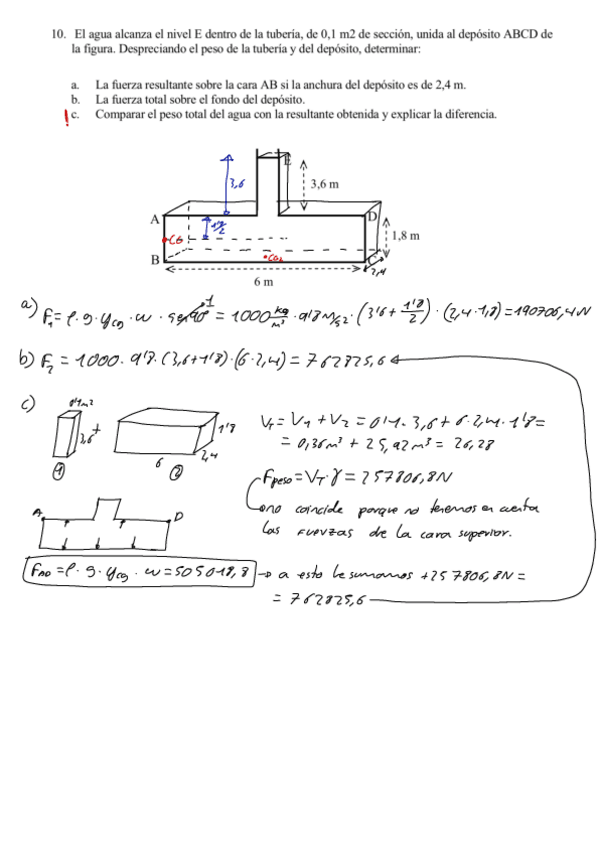 10. El agua alcanza el nivel E dentro de la tubería, de 0,1 m2 de sección, unida al depósito ABCD de
la figura. Despreciando el peso de la tubería y del depósito, determinar:
a. La fuerza resultante sobre la cara AB si la anchura del depósito es de 2,4 m.
b. La fuerza total sobre el fondo del depósito.
!c. Comparar el peso total del agua con la resultante obtenida y explicar la diferencia.
E
3,6
3,6 m
A
D
1'8/2
CG
1,8 m
B
CG₂
C
2,4
6 m
a) F₁ = ρ·g·y_CG·w·sen90°¹ = 1000 kg/m³ · 9'8 m/s² · (3'6 + 1'8/2) · (2,4·1,8) = 190706,4N
b) F₂ = 1000·9'8·(3,6+1'8)·(6·2,4) = 762825,6
c) 0'1m²
3,6
①
1'8
6
2,4
②
V_T = V₁ + V₂ = 0'1·3,6 + 6·2,4·1'8 =
= 0,36m³ + 25,92m³ = 26,28
Fpeso = V_T·γ = 257806,8N
no coincide porque no tenemos en cuenta
las fuerzas de la cara superior.
A
D
F_AD = ρ·g·y_CG·w = 505018,8 → a esto le sumamos +257806,8N =
= 762825,6